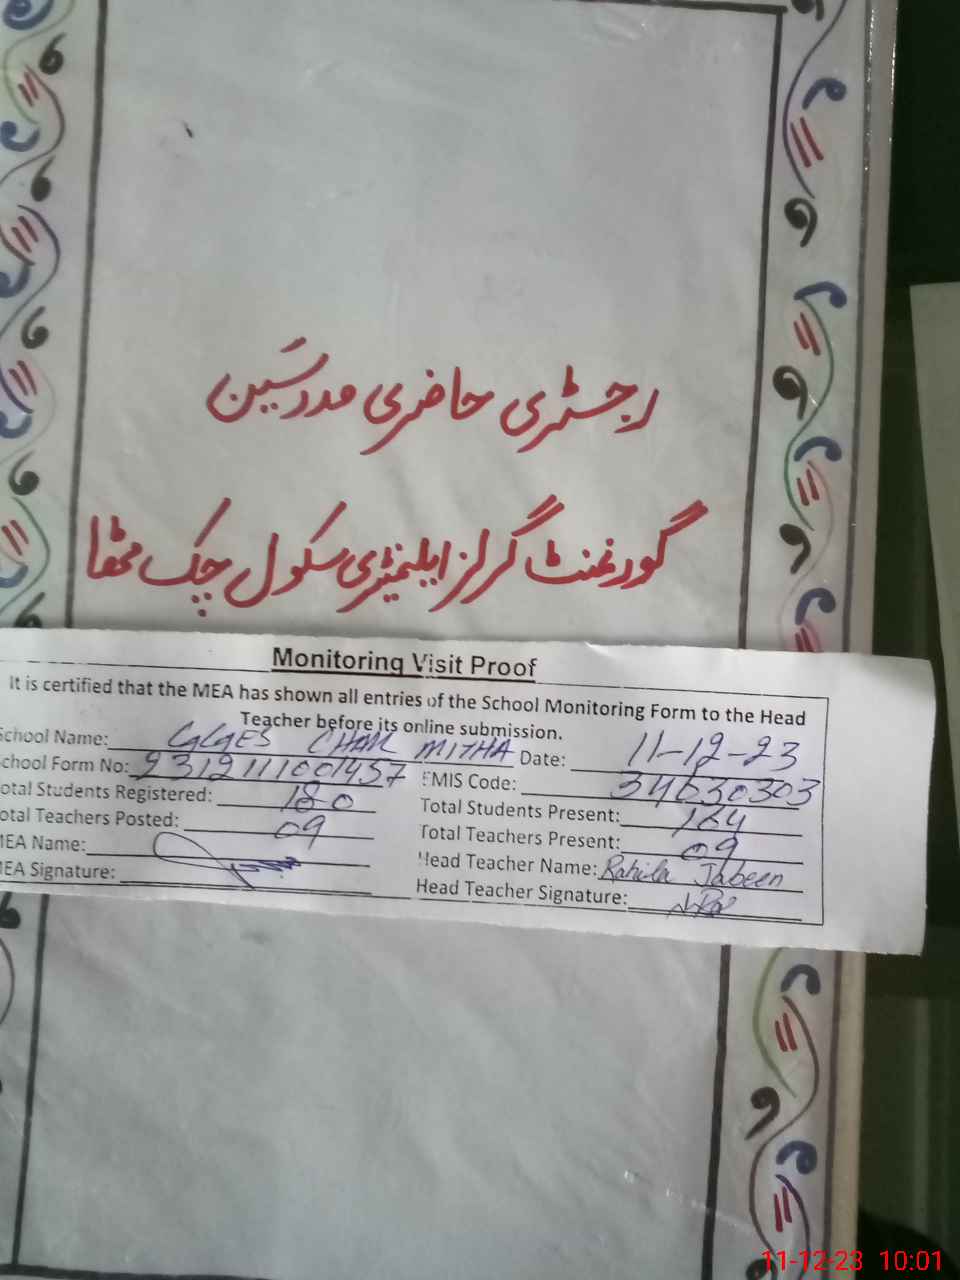 رجسٹری حاضری مدرسین
گورنمنٹ گرلز ایلیمنٹری سکول چک مٹھا
Monitoring Visit Proof
It is certified that the MEA has shown all entries of the School Monitoring Form to the Head
Teacher before its online submission.
School Name: GGES CHAK MITHA Date: 11-12-23
School Form No: 2312111001457 EMIS Code: 34630303
Total Students Registered: 180 Total Students Present: 164
Total Teachers Posted: 09 Total Teachers Present: 09
MEA Name: Head Teacher Name: Rahila Jabeen
MEA Signature: Head Teacher Signature:
11-12-23 10:01